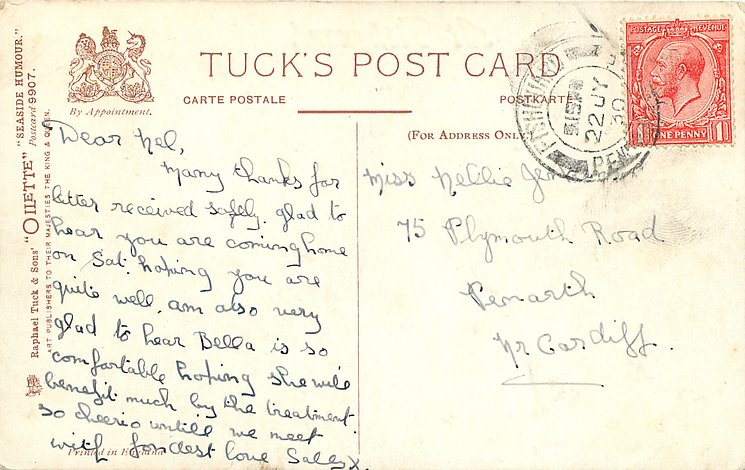 TUCK'S POST CARD
By Appointment.
CARTE POSTALE
POSTKARTE
(FOR ADDRESS ONLY.)
Raphael Tuck & Sons' "OILETTE" "SEASIDE HUMOUR."
Postcard 9907.
ART PUBLISHERS TO THEIR MAJESTIES THE KING & QUEEN.
POSTAGE REVENUE
1 ONE PENNY 1
22 JY
30
Dear Nel,
Many thanks for
letter received safely. glad to
hear you are coming home
on Sat. hoping you are
quite well. am also very
glad to hear Bella is so
comfortable hoping she will
benefit much by the treatment.
so cheerio untill we meet
with fondest love Sally x
Miss Nellie
75 Plymouth Road
Penarth
Nr Cardiff.
Printed in England